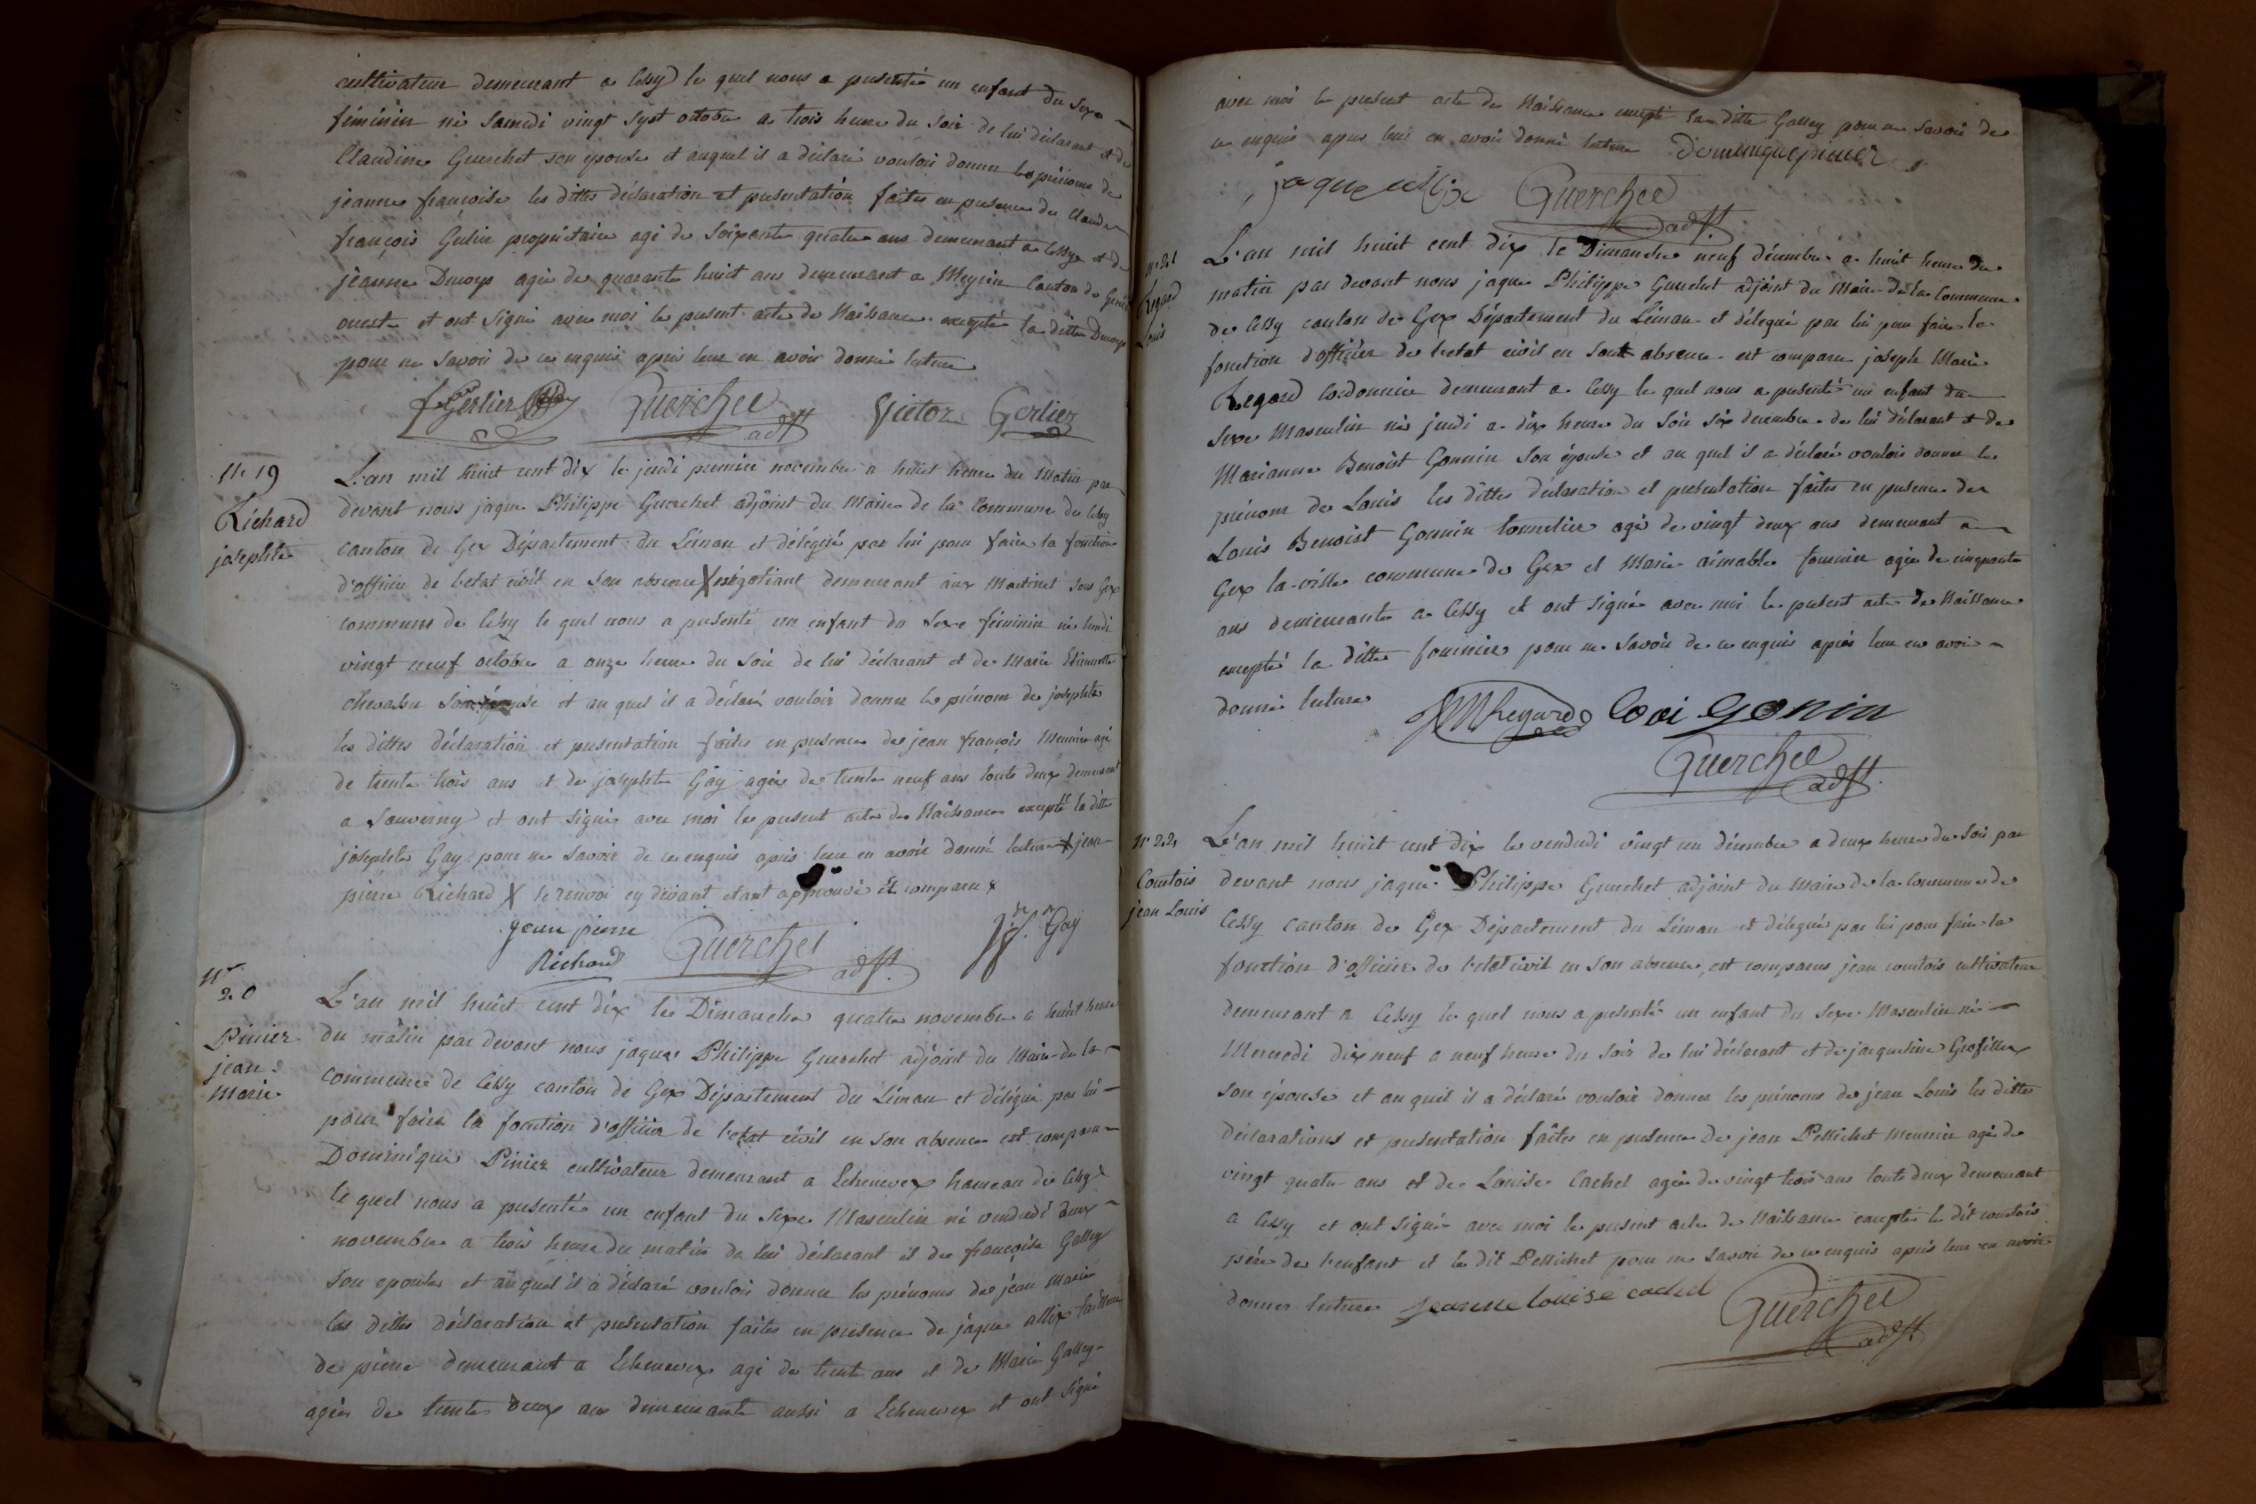 cultivateur demeurant a Cessy le quel nous a presenté un enfant du sexe
féminin né Samedi vingt sept octobre a trois heure du soir de lui déclarant et de
Claudine Guerchet son epouse et auquel il a déclaré vouloir donner les prénoms de
jeanne françoise les dittes déclaration et presentation faites en presence de Claude
françois Gerlier propriétaire agé de soixante quatre ans demeurant a Cessy et de
jeanne agée de quarante huit ans demeurant a Meyrin Canton de
ouest et ont signé avec moi le present acte de Naissance excepté la ditte
pour ne savoir de ce enquis après leur en avoir donné lecture
Gerlier Guerchet adjt Victor Gerlier
N° 19
Richard
josephte
L'an mil huit cent dix le jeudi premier novembre a huit heure du matin par
devant nous jaque Philippe Guerchet adjoint du Maire de la Commune de Cessy
canton de Gex Département du Léman et délégué par lui pour faire la fonction
d'officier de l'etat civil en son absence X négotiant demeurant aux Martinet sous Gex
commune de Cessy le quel nous a presenté un enfant du sexe féminin né lundi
vingt neuf octobre a onze heure du soir de lui déclarant et de Marie Etiennette
Chevassu son épouse et au quel il a déclaré vouloir donner le prénom de josephte
les dittes déclaration et presentation faites en presence de jean françois Meunier agé
de trente trois ans et de josephte Gay agée de trente neuf ans touts deux demeurant
a Sauverny et ont signé avec moi le present acte de Naissance excepté la ditte
josephte Gay pour ne savoir de ce enquis après leur en avoir donné lecture X jean
pierre Richard X le renvoi cy devant etant approuvé est comparu X
jean pierre
Richard Guerchet adjt Gay
N°
20
Pinier
jean
Marie
L'an mil huit cent dix le Dimanche quatre novembre a huit heure
du matin par devant nous jaque Philippe Guerchet adjoint du Maire de la
commune de Cessy canton de Gex Département du Léman et délégué par lui
pour faire la fonction d'officier de l'etat civil en son absence est comparu
Dominique Pinier cultivateur demeurant a Echenevex hameau de Cessy
le quel nous a presenté un enfant du sexe Masculin né vendredi deux
novembre a trois heure du matin de lui déclarant et de françoise Galley
son epouse et auquel il a déclaré vouloir donner les prénoms de jean Marie
les dittes déclaration et presentation faites en presence de jaque allix tailleur
de pierre demeurant a Echenevex agé de trente ans et de Marie Galley
agée de trente deux ans demeurante aussi a Echenevex et ont signé
avec moi le present acte de Naissance excepté la ditte Galley pour ne savoir de
ce enquis apres leur en avoir donné lecture Dominique pinier
jaque allix Guerchet adjt
N° 21
Regard
Louis
L'an mil huit cent dix le Dimanche neuf décembre a huit heure du
matin par devant nous jaque Philippe Guerchet adjoint du Maire de la Commune
de Cessy canton de Gex Département du Léman et délegué par lui pour faire la
fonction d'officier de l'etat civil en son absence est comparu joseph Marie
Regard Cordonnier demeurant a Cessy le quel nous a presenté un enfant du
sexe Masculin né jeudi a dix heure du soir six decembre de lui déclarant et de
Marianne Benoist Gonnin son épouse et au quel il a déclaré vouloir donner le
prénom de Louis les dittes déclaration et presentation faites en presence de
Louis Benoist Gonnin tonnelier agé de vingt deux ans demeurant a
Gex la ville commune de Gex et Marie aimable fournier agée de cinquante
ans demeurante a Cessy et ont signé avec moi le present acte de Naissance
excepté la ditte fournier pour ne savoir de ce enquis après leur en avoir
donné lecture JMRegard Loui Gonin
Guerchet
adjt
N° 22
Courtois
jean Louis
L'an mil huit cent dix le vendredi vingt un décembre a deux heure du soir par
devant nous jaque Philippe Guerchet adjoint du Maire de la Commune de
Cessy canton de Gex Département du Léman et délegué par lui pour faire la
fonction d'officier de l'etat civil en son absence, est comparus jean courtois cultivateur
demeurant a Cessy le quel nous a presenté un enfant du sexe Masculin né
Mercredi dix neuf a neuf heure du soir de lui déclarant et de jacqueline Grosfillex
son épouse et au quel il a déclaré vouloir donner les prénoms de jean Louis les dittes
déclarations et presentation faites en presence de jean Pellichet Meunier agé de
vingt quatre ans et de Louise Cachet agée de vingt trois ans touts deux demeurant
a Cessy et ont signé avec moi le present acte de Naissance excepté le dit courtois
père de l'enfant et le dit Pellichet pour ne savoir de ce enquis après leur en avoir
donner lecture jeanne louise cachet Guerchet
adjt